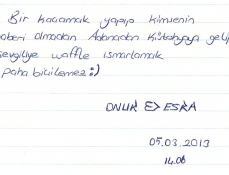 Bir kaçamak yapıp kimsenin
haberi olmadan Adanadan Kütahyaya gelip
sevgiliye waffle ısmarlamak
paha biçilemez :)
ONUR ESRA
05.03.2013
14.06